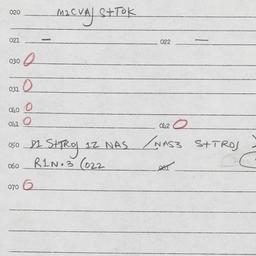 020 M2CVAJ S+TOK
021 — 022 —
030 0
031 0
040 0
041 0 042 0
050 D1 S+TROJ 1Z NAS / NAS3 S+TROJ
060 R1N.3 (022
070 0